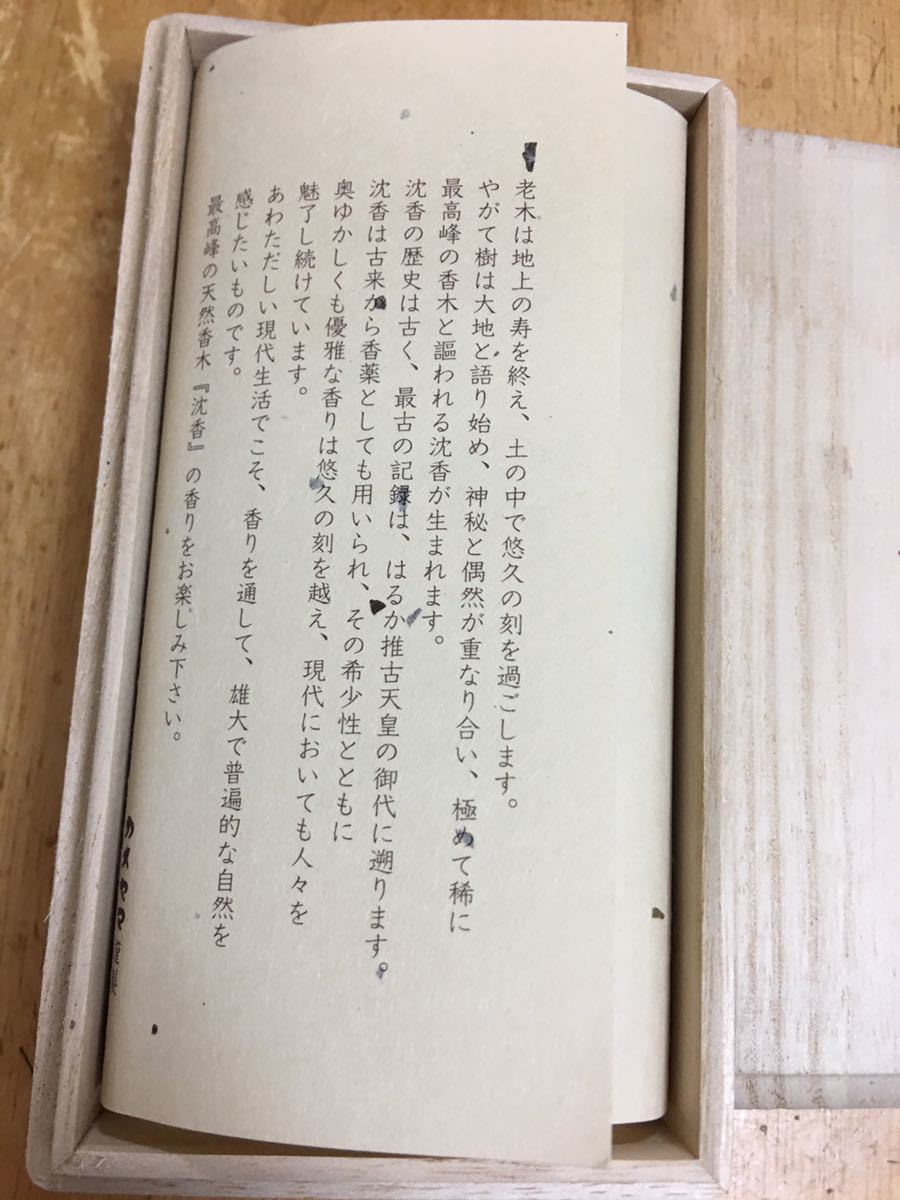 老木は地上の寿を終え、土の中で悠久の刻を過ごします。
やがて樹は大地と語り始め、神秘と偶然が重なり合い、極めて稀に
最高峰の香木と謳われる沈香が生まれます。
沈香の歴史は古く、最古の記録は、はるか推古天皇の御代に遡ります。
沈香は古来から香薬としても用いられ、その希少性とともに
奥ゆかしくも優雅な香りは悠久の刻を越え、現代においても人々を
魅了し続けています。
あわただしい現代生活でこそ、香りを通して、雄大で普遍的な自然を
感じたいものです。
最高峰の天然香木『沈香』の香りをお楽しみ下さい。
カメヤマ謹製